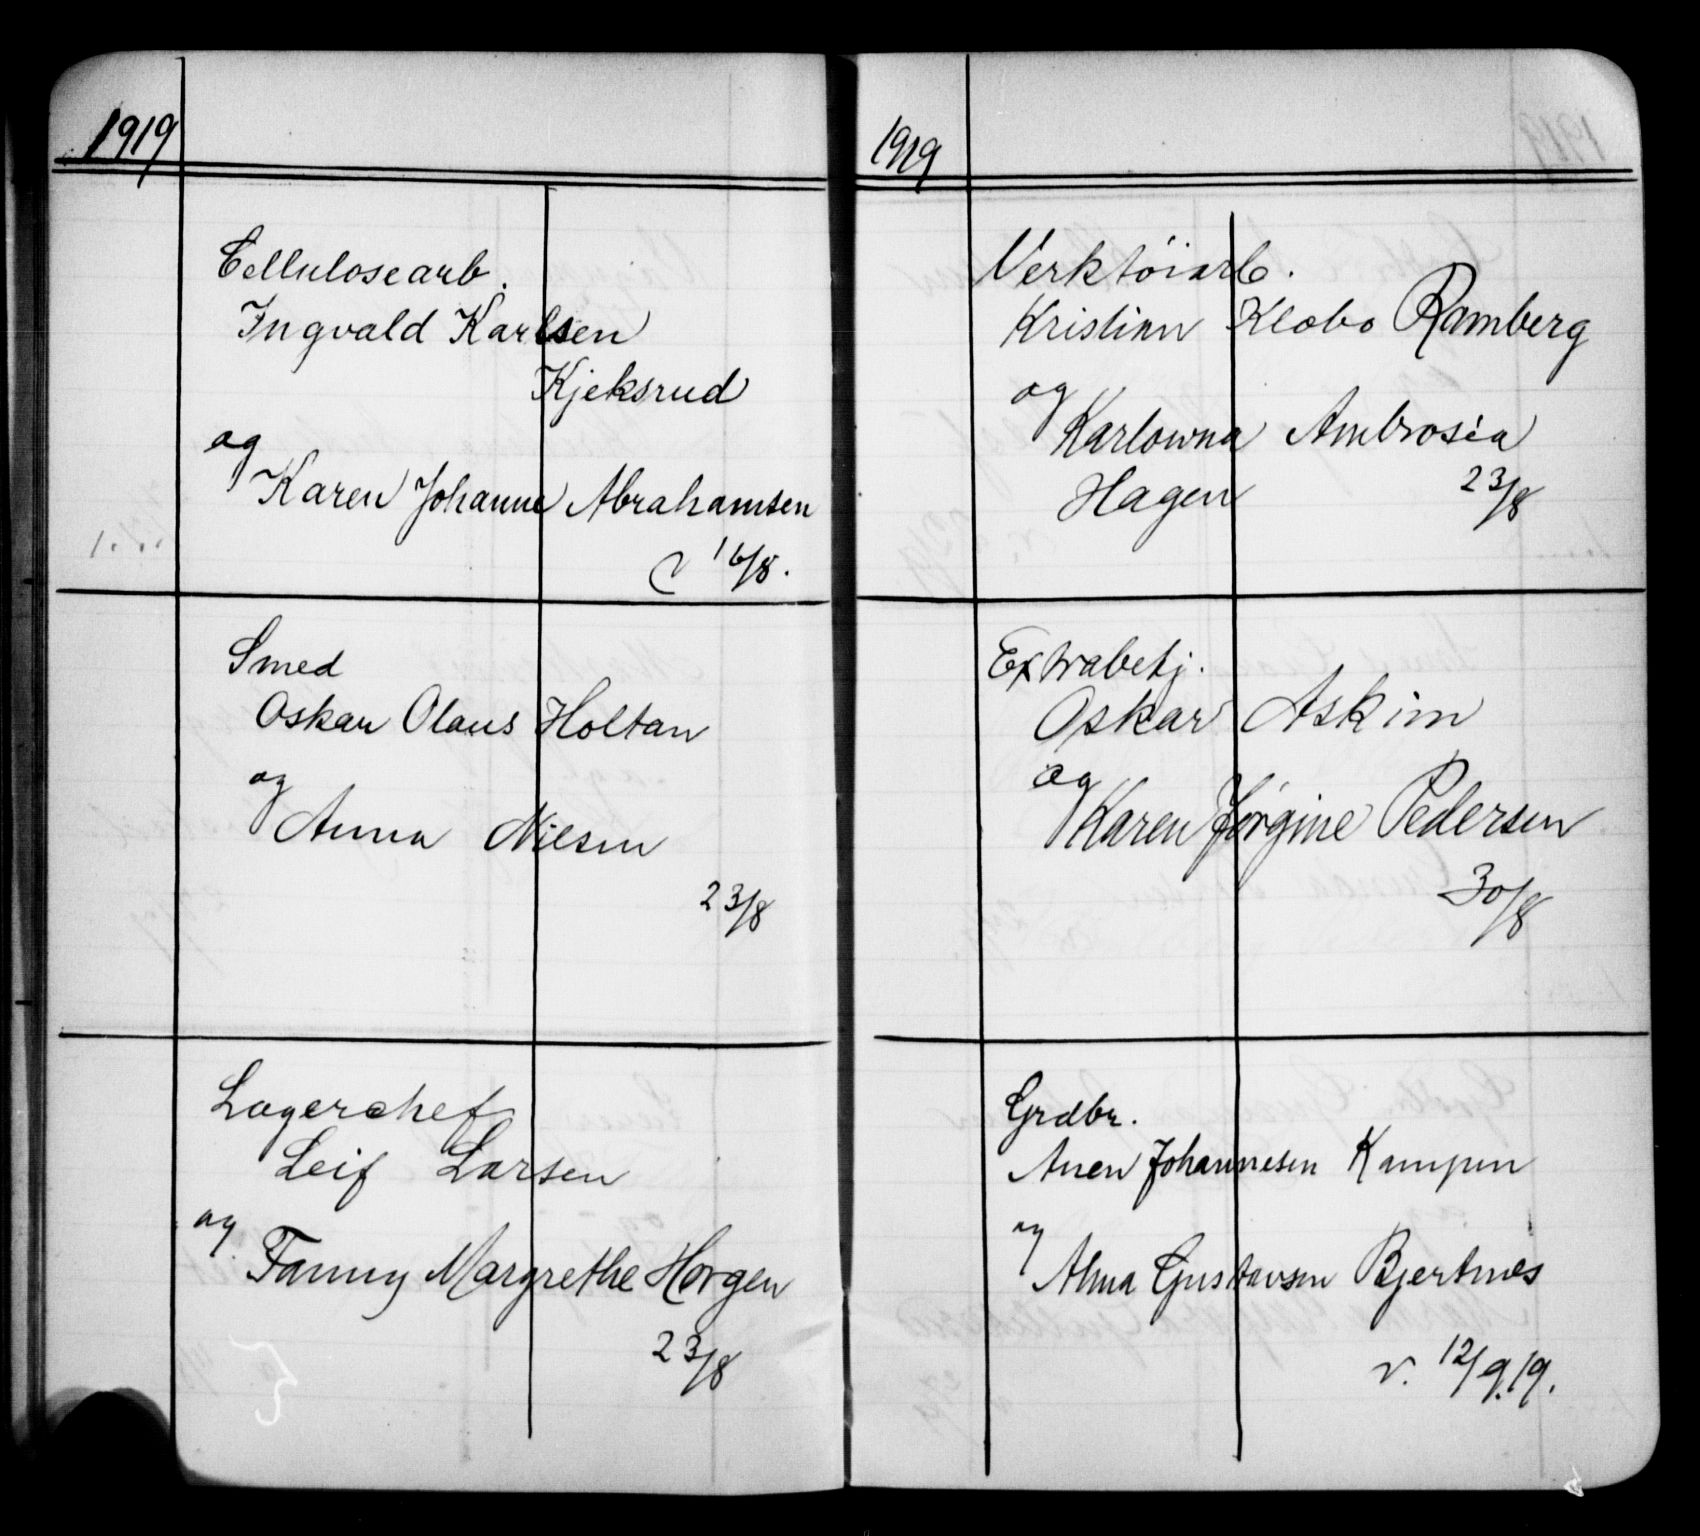 1919
Cellulosearb.
Ingvald Karlsen
Kjeksrud
og
Karen Johanne Abrahamsen
v 16/8.
Smed
Oskar Olaus Holtan
og
Anna Nilsen
23/8
Lagerchef
Leif Larsen
og
Fanny Margrethe Horgen
23/8
1919
Verktøiarb.
Kristian Klobo Ramberg
og
Karlowna Ambrosia
Hagen
23/8
Extrabetj.
Oskar Askim
og
Karen Jørgine Pedersen
30/8
Grdbr.
Johannesen Kampen
og
Alma Gustavsen Bjertnes
v. 12/9.19.